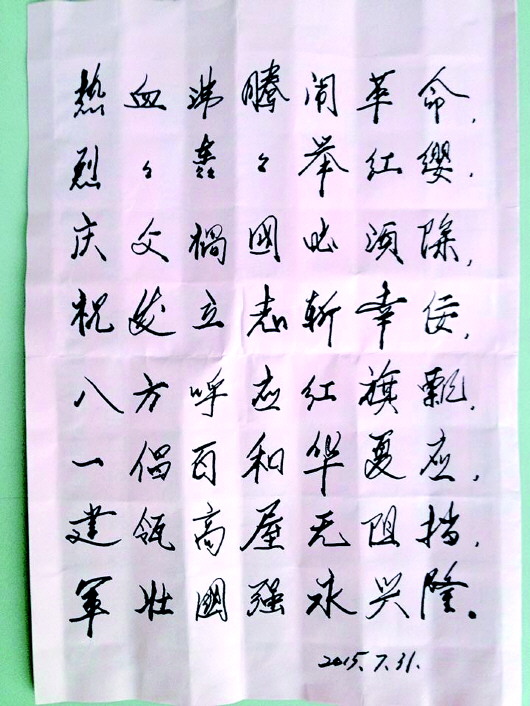 熱血沸腾闹革命,
烈々轰々举红缨.
庆父祸國必须除,
祝发立志斩幸佞.
八方呼应红旗飘.
一倡百和华夏应.
建瓴高屋无阻挡.
军壮國强永兴隆.
2015.7.31.